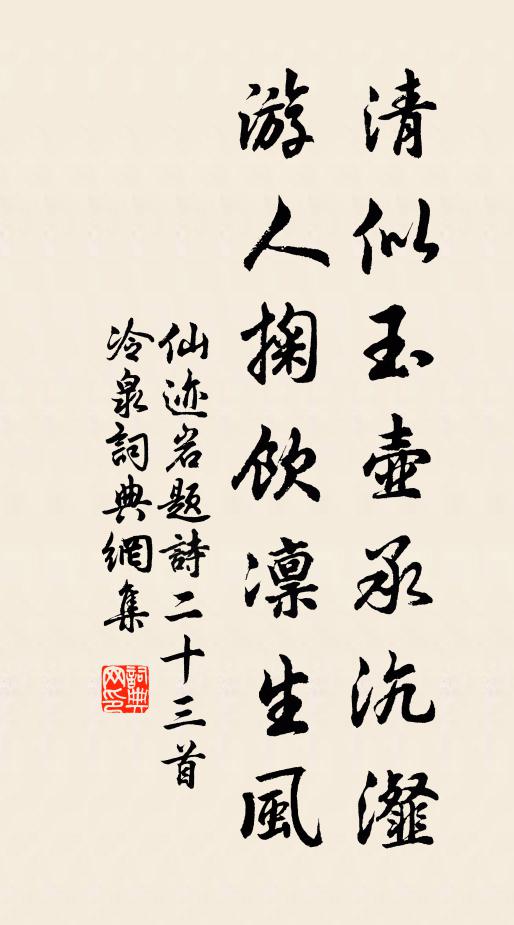 清似玉壺承沆瀣
游人掬飲凛生風
仙迹岩题詩二十三首
冷泉詞典網集
詞典网印